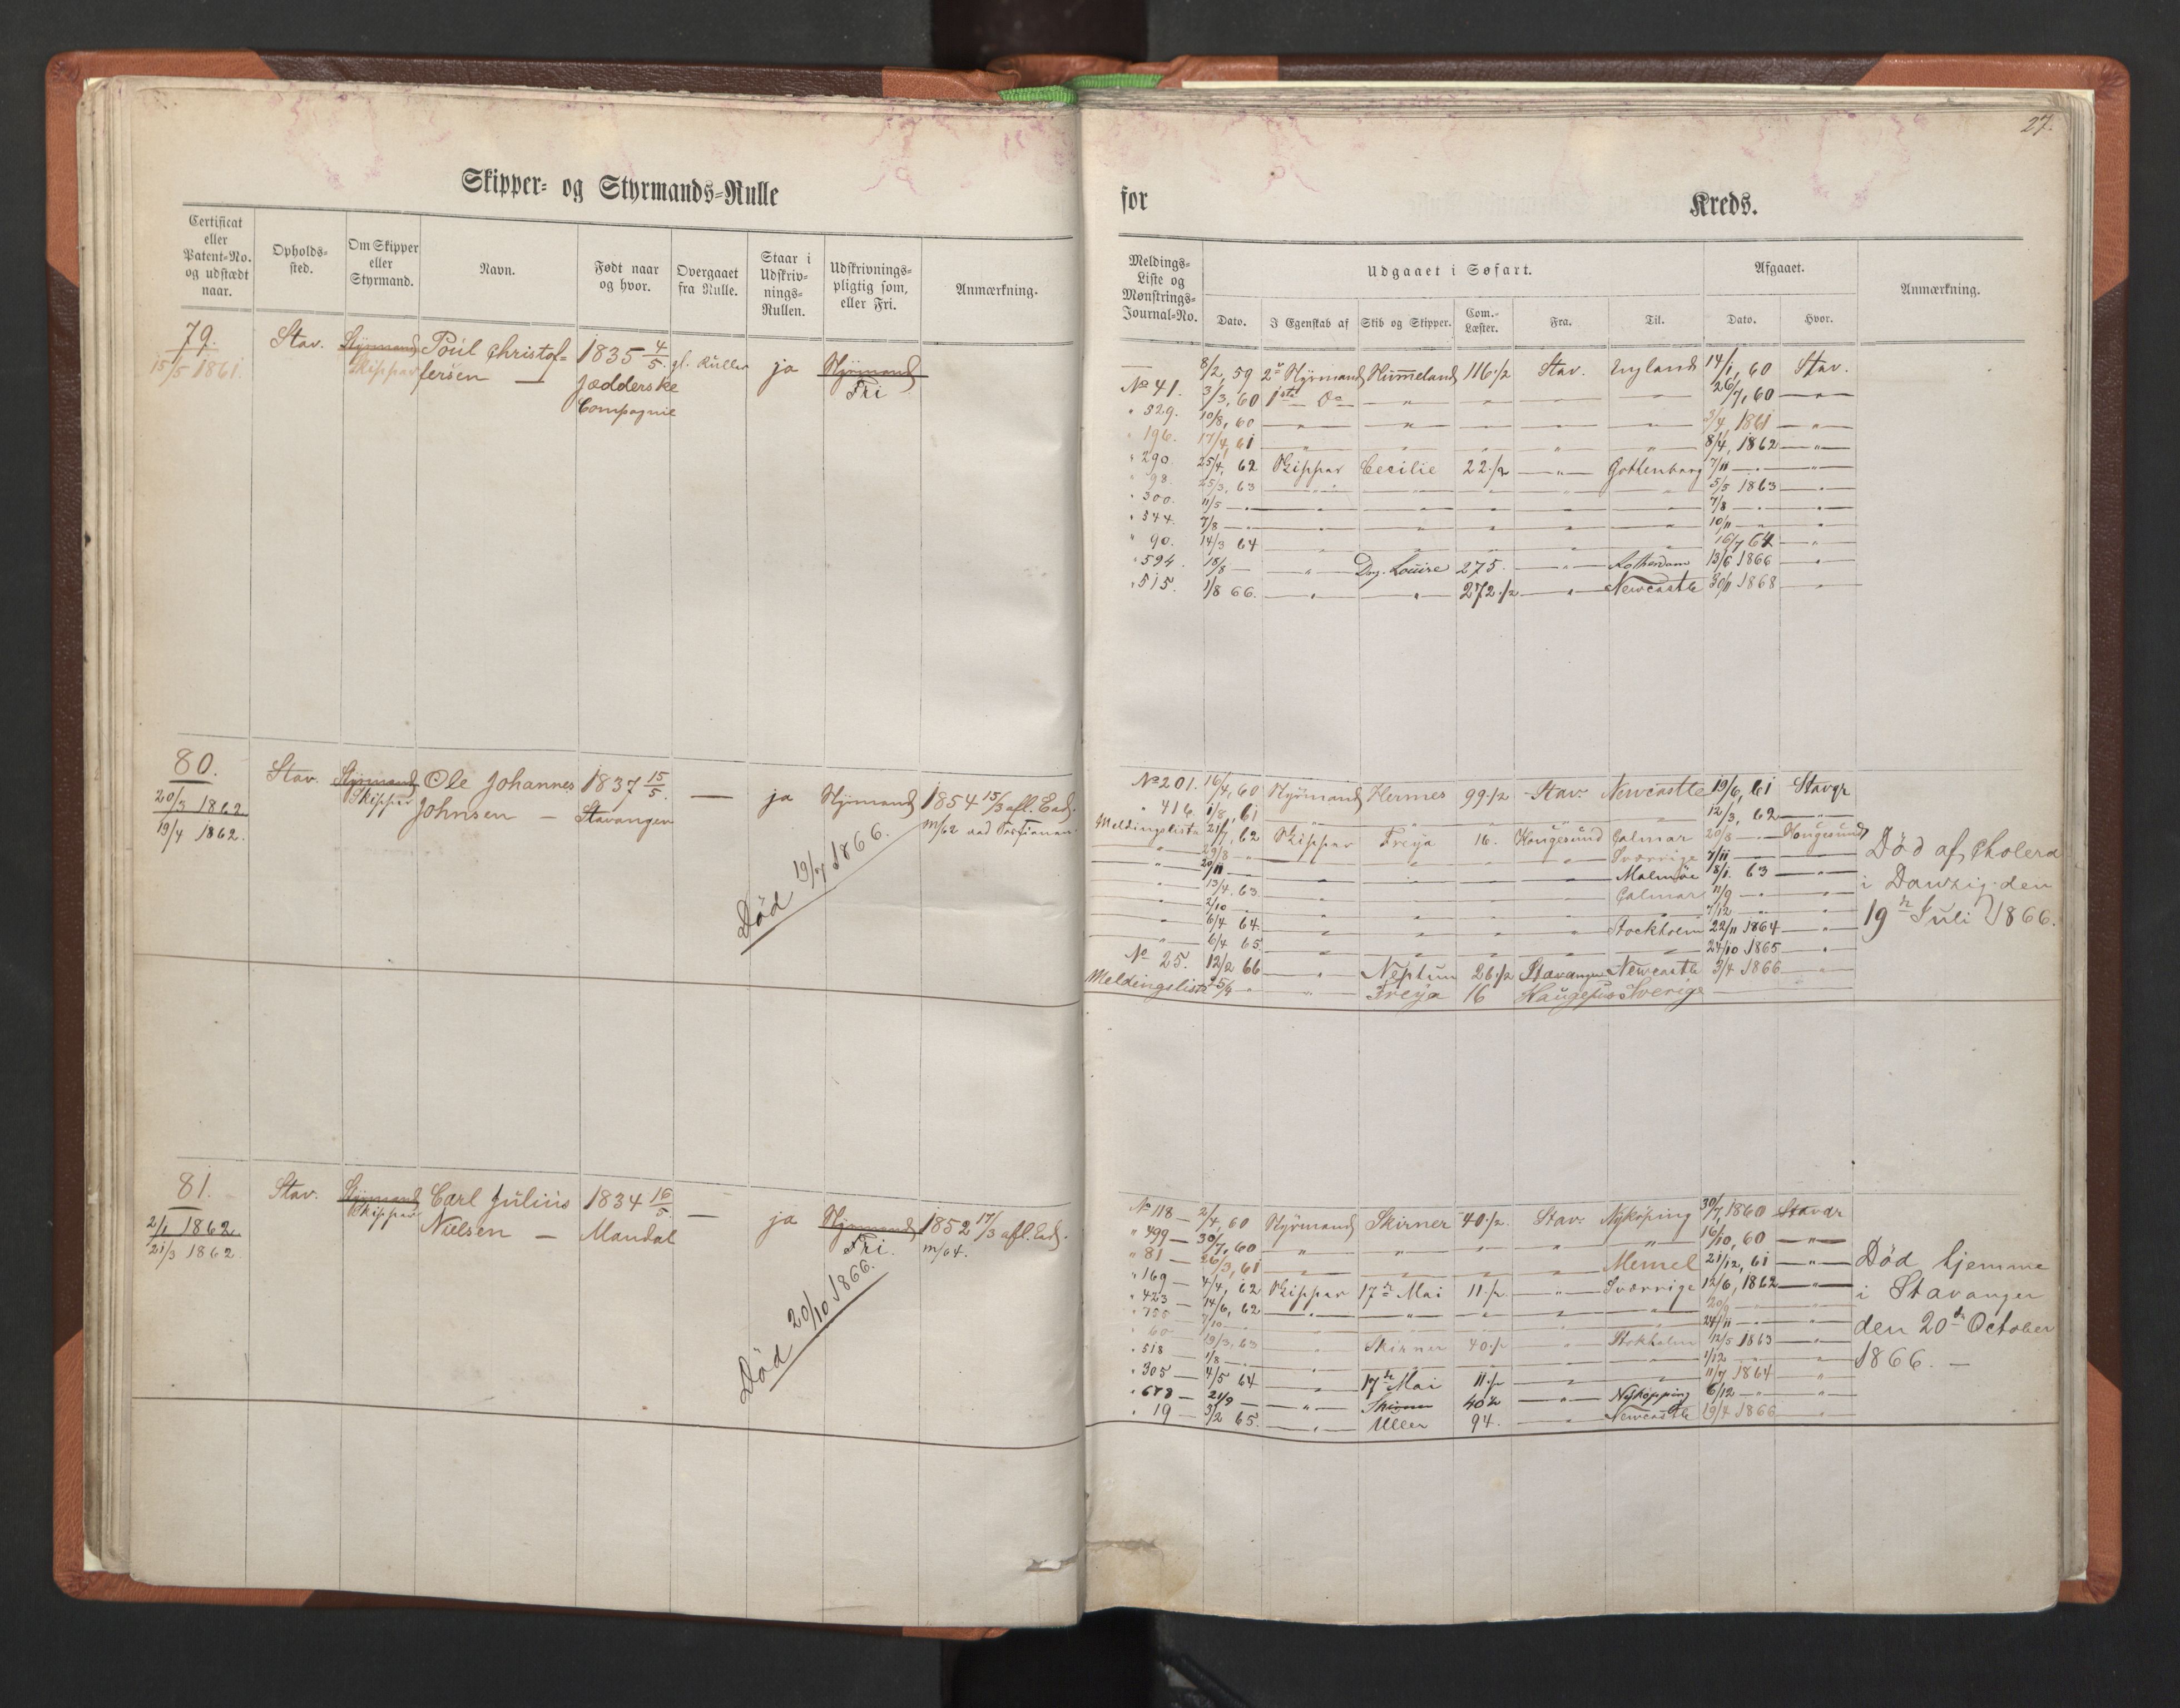 27.
Skipper- og Styrmands-Rulle
for Kreds.
Certificat eller Patent-No. og udstædt naar.
Opholds-sted.
Om Skipper eller Styrmand.
Navn.
Født naar og hvor.
Overgaaet fra Rulle.
Staar i Udskriv-nings-Rullen.
Udskrivnings-pligtig som, eller Fri.
Anmærkning.
79. Stav. Styrmand Poul Christof- 1835 4/5 gl. Ruller ja Styrmand
15/5 1861. Skipper fersen — Jædderske Fri
Compagnie
80. Stav. Styrmand Ole Johannes 1837 15/5. — ja Styrmand 1854 15/3 afl. Eed.
20/3 1862. Skipper Johnsen — Stavanger m/62
19/4 1862.
Død 19/7 1866.
81. Stav. Styrmand Carl Julius 1834 16/5. — ja Styrmand 1852 17/3 afl. Eed.
2/1 1862. Skipper Nielsen — Mandal Fri. m/64.
21/3 1862.
Død 20/10 1866.
Meldings-Liste og Mønstrings-Journal-No.
Udgaaet i Søfart.
Dato.
I Egenskab af
Skib og Skipper.
Com.-Læster.
Fra.
Til.
Afgaaet.
Dato.
Hvor.
Anmærkning.
— 8/2, 59 2n Styrmand Hummeland 116 1/2 Stav. England 14/1, 60 Stav.
No 41. 3/3, 60 1ste Do — " — " — — — 26/7, 60 — " —
" 329. 10/8, 60 — " — " — " — — — 3/4 1861 — " —
" 196. 17/4, 61 — " — " — " — " — " 8/4, 1862 — " —
" 290. 25/4, 62 Skipper Cecilie 22 1/2 — " — Gottenborg 7/11 — " — " —
" 98. 25/3, 63 — " — " — " — " — " 5/5 1863 — " —
" 300. 11/5 — " — " — " — " — " — " 7/8 — " — " —
" 544. 7/8 — " — " — " — " — " — " 10/11 — " — "
" 90. 14/3 64 — " — " — " — " — " 16/7 64 — "
" 594. 18/8 — — " — Dmp. Louise 275. — " — Rotterdam 13/6 1866 — "
" 515. 1/8 66. — " — " — 272 1/2 — " — Newcastle 30/11 1868 — "
No 201. 16/4, 60 Styrmand Hermes 99 1/2 Stav. Newcastle 19/6, 61 Stavgr
" 416. 1/8, 61 — " — " — " — " — " 12/3, 62 — " —
Meldingsliste 21/7, 62 Skipper Freya 16. Haugesund Calmar 20/8 — " — Haugesund
— " — 29/8 — " — " — " — " — " — Sverrige 7/11 — —
— " — 20/11 — " — " — " — " — Malmøe 18/1. 63 — " —
— " — 13/4. 63 — " — " — " — " — Calmar 11/9 — " — "
— " — 2/10 — " — " — " — " — " — " 7/12 — " — "
— " — 6/4 64. — " — " — " — " — Stockholm 22/11 1864 — "
— " — 6/4 65. — " — " — " — " — " 24/10 1865 — "
No 25. 12/2 66 — " — Neptun 26 1/2 Stavanger Newcastle 3/4 1866 — "
Meldingsliste 25/4 " — " — Freya 16 Sverige — —
Død af Cholera
i Danzig den
19n Juli 1866.
No 118 — 2/4, 60 Styrmand Skirner 40 1/2. Stav. Nykøping 30/7, 1860 Stavgr
" 499 — 30/7, 60 — " — " — " — " — " 16/10, 60 — " —
" 81 — 26/3, 61 — " — " — " — " — Memel 21/12, 61 — " —
" 169 — 4/4, 62 Skipper 17n Mai 11 1/2. — " — Sverrige 12/6, 1862 — " —
" 423 — 14/6, 62 — " — " — " — " — " 20/9 — "
7/10 — " — " — " — " — " — " 24/11 — " — "
" 60 — 19/3, 63 — " — Skirner 40 1/2 — " — Stokholm 12/5 1863 — " —
" 518 — 1/8 — " — " — " — " — " — " 1/12 — " — "
" 305 — 4/5 64 — " — 17n Mai 11 1/2 — " — " 11/7 1864 — "
" 678 — 21/9 — — " — Skirner 40 1/2 — " — Nykøpping 6/12 — " — "
" 19 — 3/2 65. — " — Uller 94. — " — Newcastle 19/4 1866 — "
Død hjemme
i Stavanger
den 20de October
1866. —